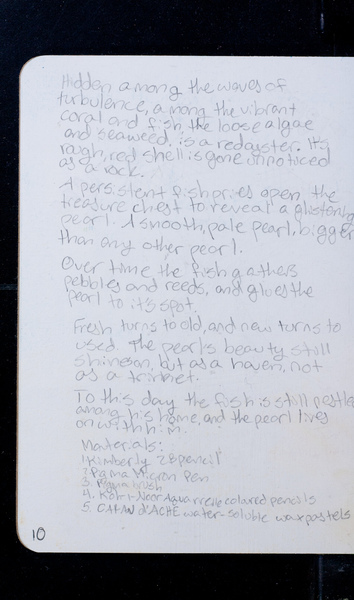 Hidden among the waves of
turbulence, among the vibrant
coral and fish, the loose algae
and seaweed, is a red oyster. It's
rough, red shell is gone unnoticed
as a rock.
A persistent fish pries open the
treasure chest to reveal a glistening
pearl. A smooth, pale pearl, bigger
than any other pearl.
Over time the fish gathers
pebbles and reeds, and glues the
pearl to it's spot.
Fresh turns to old, and new turns to
used. The pearl's beauty still
shines on, but as a haven, not
as a trinket.
To this day the fish is still nestled
among his home, and the pearl lives
on with him.
Materials:
1. Kimberly 2B pencil
2. Pigma Micron Pen
3. brush
4. Koh-I-Noor Aquarelle colored pencils
5. CARAN d'ACHE water-soluble wax pastels
10